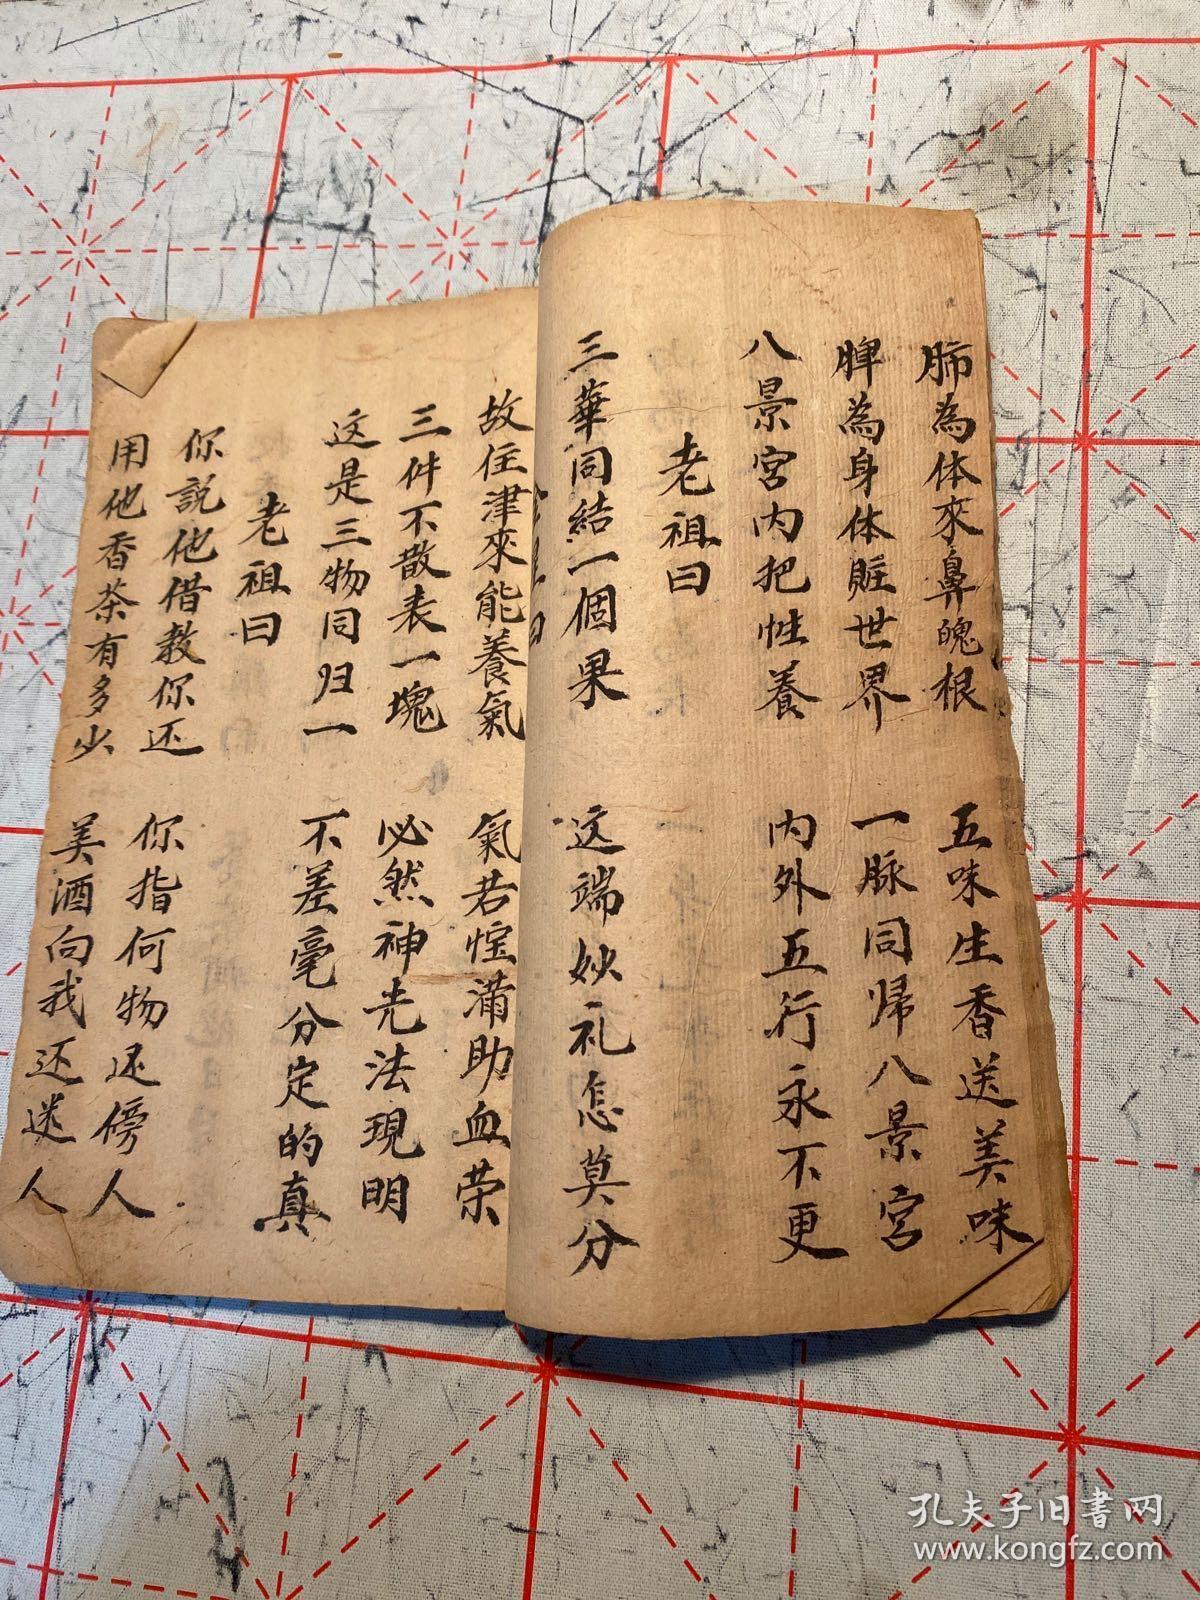 肺為体來鼻魄根 五味生香送美味
脾為身体賍世界 一脉同帰八景宮
八景宮内把性養 内外五行永不更
老祖曰
三華同結一個果 这端妙礼怎莫分
故住津來能養氣 氣若惶滿助血荣
三件不散表一塊 必然神光法現明
这是三物同归一 不差毫分定的真
老祖曰
你說他借教你还 你指何物还傍人
用他香茶有多少 美酒向我还送人
孔夫子旧書网
www.kongfz.com